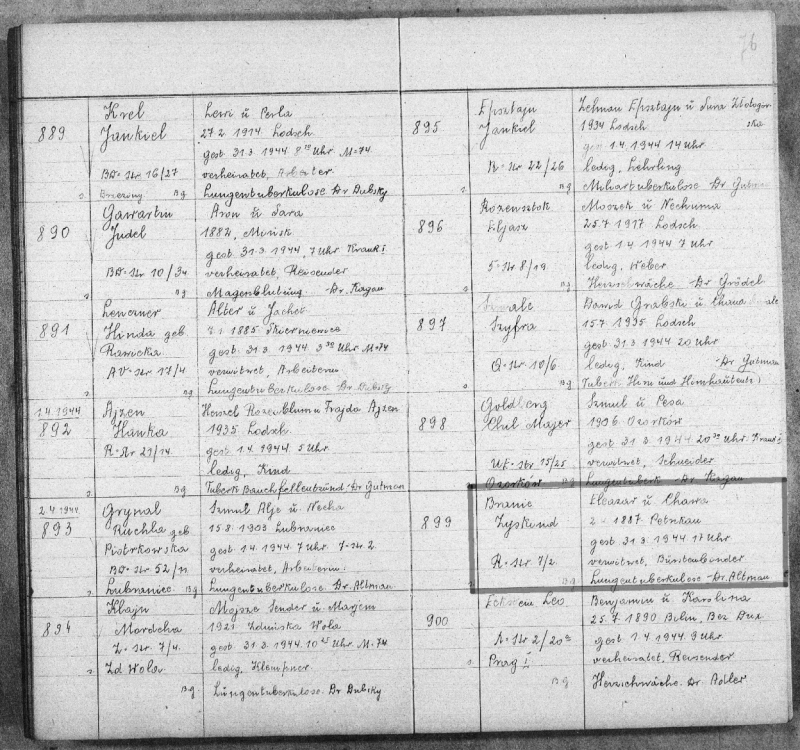 76
Krel Lewi u Perla
889 Jankiel 27.2 1914 Lodsch
gest 31.3 1944 8 Uhr M=74
BA-Str 16/27 verheiratet, Arbeiter
Brzeziny Bg Lungentuberkulose Dr Dubsky
Gawartin Aron u Sara
890 Judel 1882, Minsk
gest 31.3 1944, 7 Uhr Krank I
BA-Str 10/34 verheiratet, Reisender
Bg Magenblutung Dr. Kagan
Lenczner Alter u Jachet
891 Hinda geb 1885 Skierniewice
Rawicka gest 31.3 1944 3 Uhr M=74
AV-Str 17/4 verwitwet, Arbeiterin
Bg Lungentuberkulose Dr Dubsky
1.4.1944 Ajzen Herszel Rozenblum u Frajda Ajzen
892 Hanka 1935 Lodsch
R-Str 21/14 gest 1.4 1944 5 Uhr
ledig, Kind
Bg Tuberk Bauchfellentzünd Dr Gutman
2.4.1944 Grynal Szmul Alje u Necha
893 Ruchla geb 15.8. 1903 Lubraniec
Piotrkowska gest 1.4.1944 7 Uhr 7-Str 2
BA-Str 52/11 verheiratet, Arbeiterin
Lubraniec Bg Lungentuberkulose Dr. Altman
Klajn Mojsze Sender u Marjem
894 Mordcha 1921 Zdunska Wola
Z-Str. 7/4. gest. 31.3 1944. 10 45 Uhr. M=74
Zd Wola ledig, Klempner
Bg Lungentuberkulose. Dr Dubsky
Epsztajn Zelman Epsztajn u Sura Zlotogor
895 Jankiel 1934 Lodsch ska
gest 1.4 1944 14 Uhr
R-Str 22/26 ledig, Lehrling
Bg Miliartuberkulose Dr Gutman
Rozensztok Moszek u Nechuma
896 Eljasz 25.7 1917 Lodsch
gest 1.4 1944 7 Uhr
5-Str 8/19 ledig, Weber
Bg Herzschwäche Dr Grödel
Dawid Grabski u Chana
897 Szyfra 15.7 1935 Lodsch
gest 31.3 1944 20 Uhr
O-Str 10/6 ledig, Kind Dr Gutman
Bg Tuberk Hirn und Hirnhautentz
Goldberg Szmul u Pesa
898 Chil Majer 1906 Ozorków
gest 31.3 1944 20 Uhr Krank I
WF-Str 15/25 verwitwet, Schneider
Ozorków Bg Lungentuberk Dr Kagan
Branic Eleazar u Chawa
899 Zyskind 1887 Petrikau
gest 31.3 1944 17 Uhr
R-Str 7/2 verwitwet, Bürstenbinder
Bg Lungentuberkulose Dr. Altman
Eckstein Leo Benjamin u Karolina
900 25.7 1890 Bolin, Bez Dux
A-Str 2/20a gest 1.4 1944 9 Uhr
Prag I verheiratet, Reisender
Bg Herzschwäche Dr. Adler